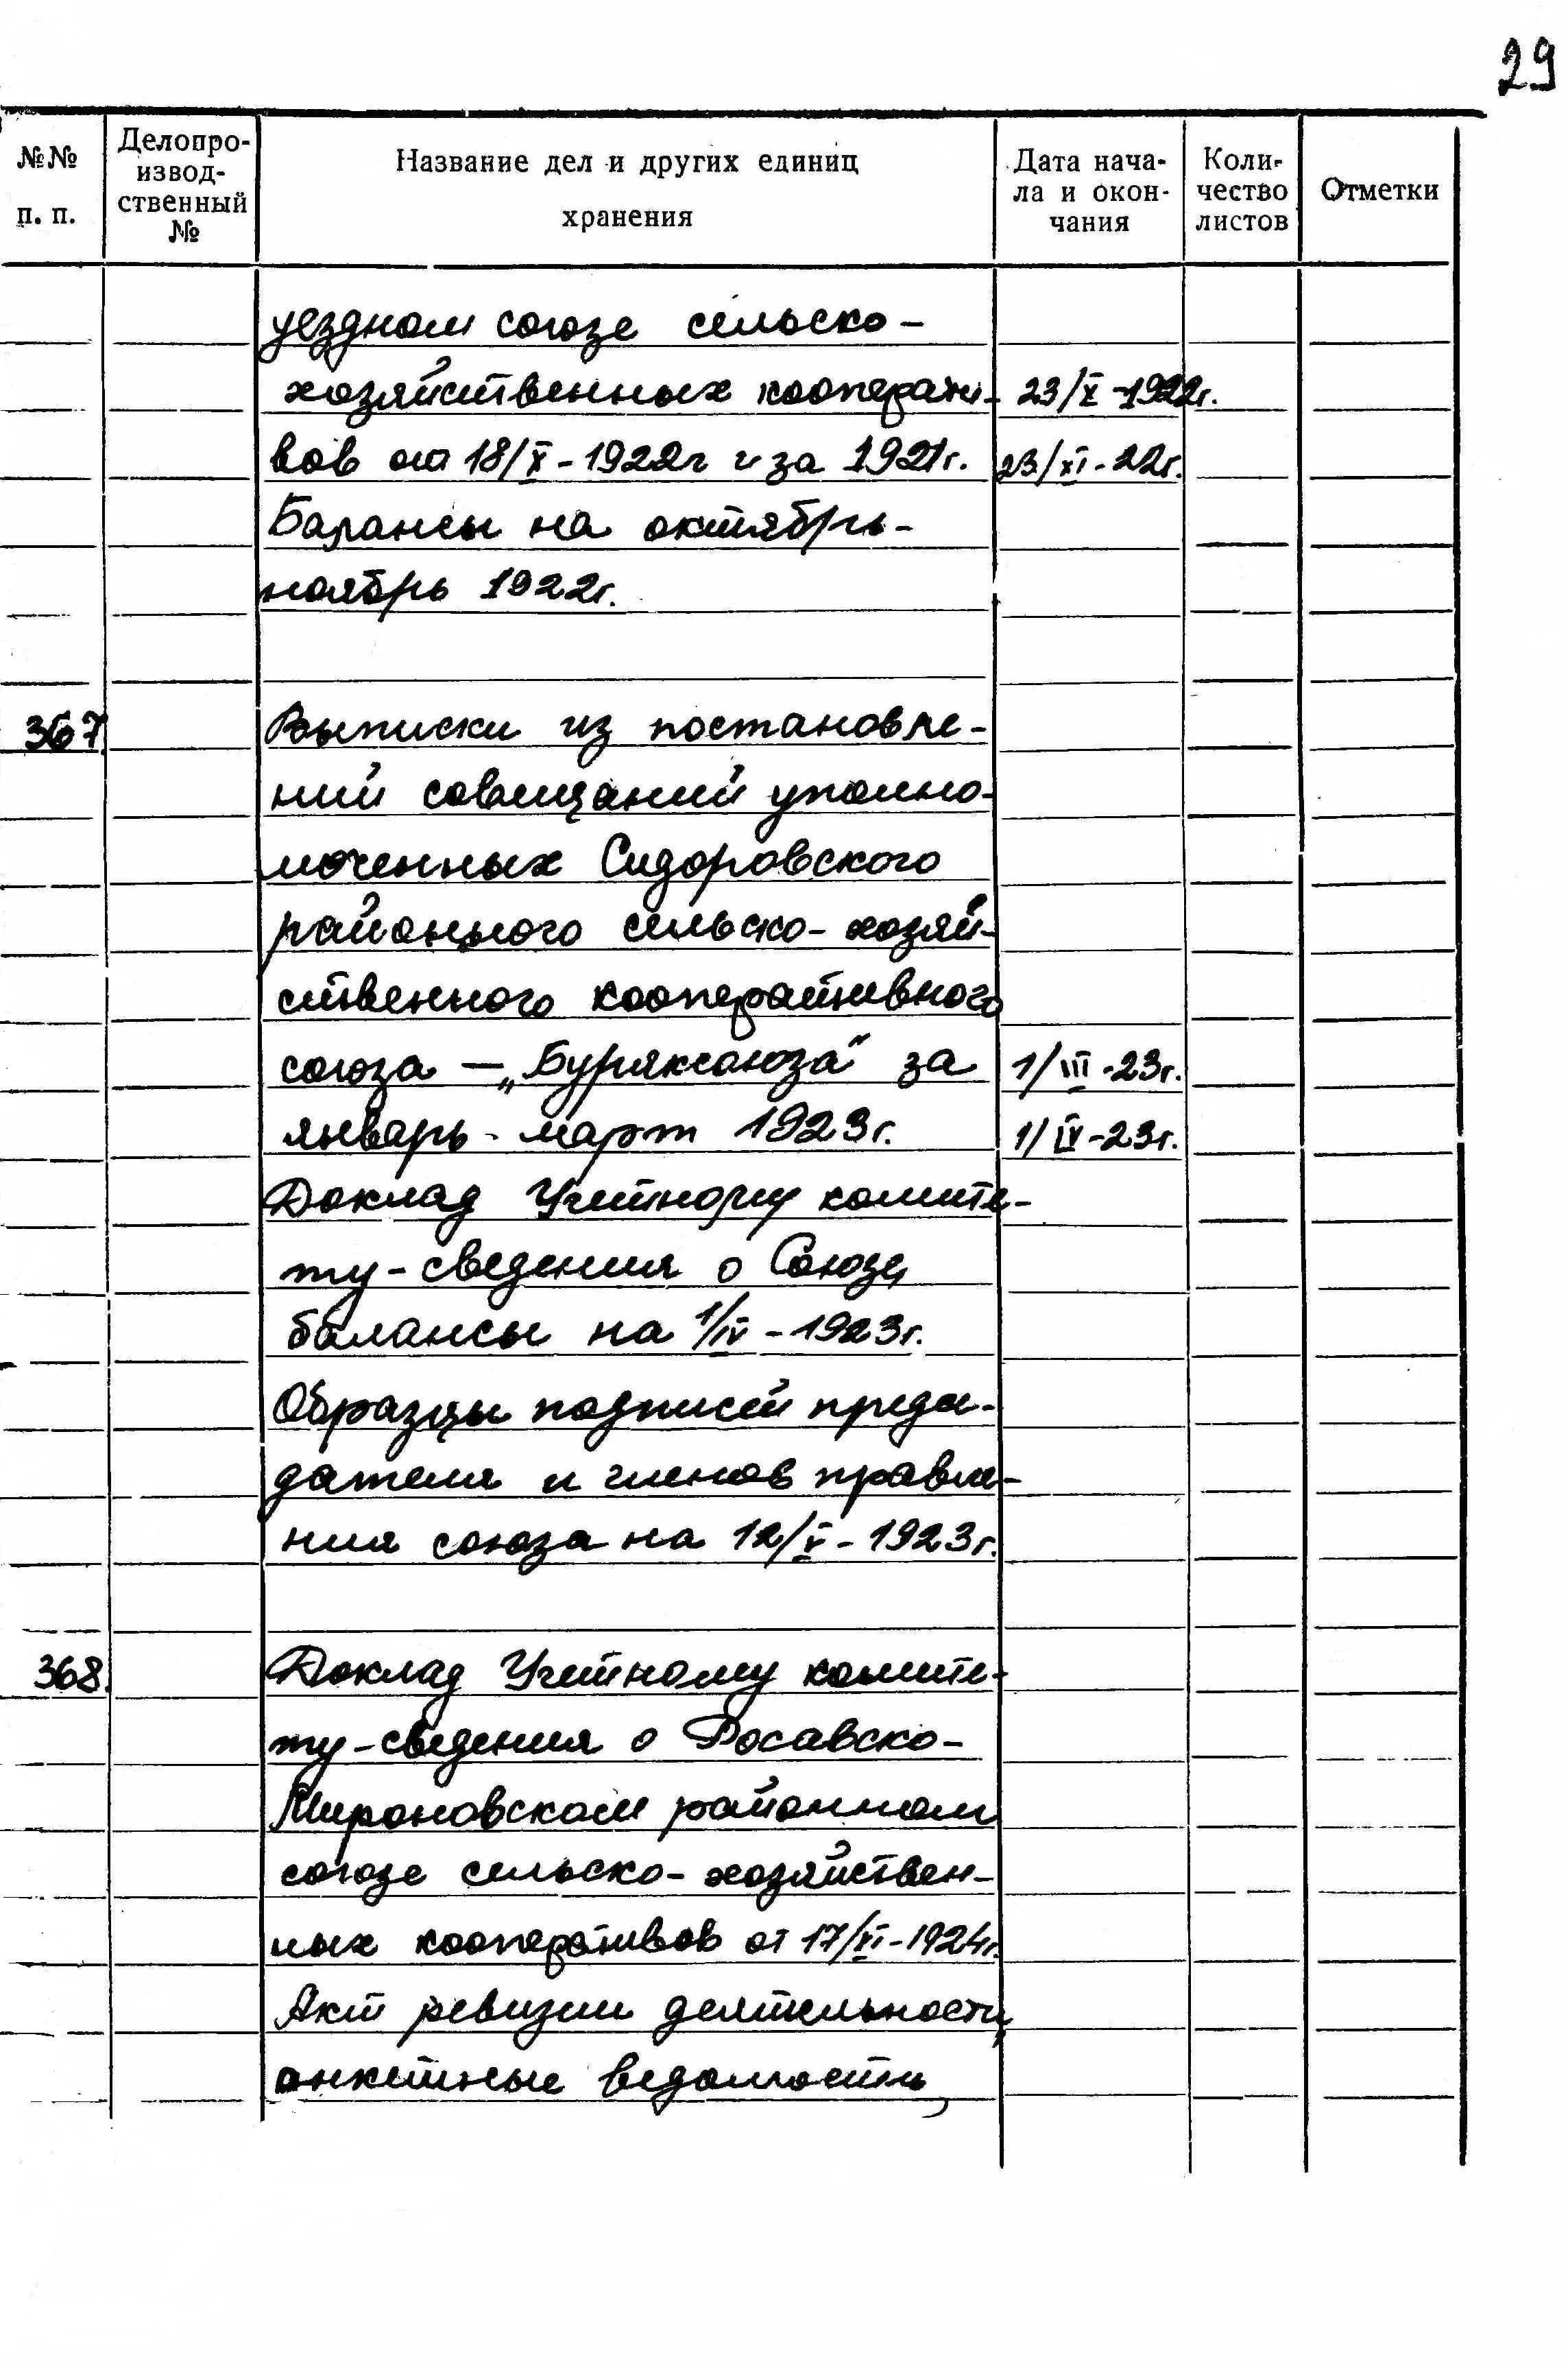 29
№№ п. п.
Делопро-
извод-
ственный
№
Название дел и других единиц
хранения
Дата нача-
ла и окон-
чания
Коли-
чество
листов
Отметки
уездном союзе сельско-
хозяйственных коопераги- 23/X-1922г.
вов от 18/X-1922г и за 1921г. 23/XI-22г.
Балансы на октябрь-
ноябрь 1922г.
367 Выписки из постановле-
ний совещаний уполно-
моченных Сидоровского
районного сельско-хозяй-
ственного кооперативного
союза — „Буряксоюза" за 1/III-23г.
январь-март 1923г. 1/IV-23г.
Доклад Учетному комите-
ту-сведения о Союзе,
балансы на 1/IV-1923г.
Образцы подписей предсе-
дателя и членов правле-
ния союза на 12/V-1923г.
368. Доклад Учетному комите-
ту-сведения о Росавско-
Мироновском районном
союзе сельско-хозяйствен-
ных кооперативов от 17/XI-1924г.
Акт ревизии деятельности,
анкетные ведомости,